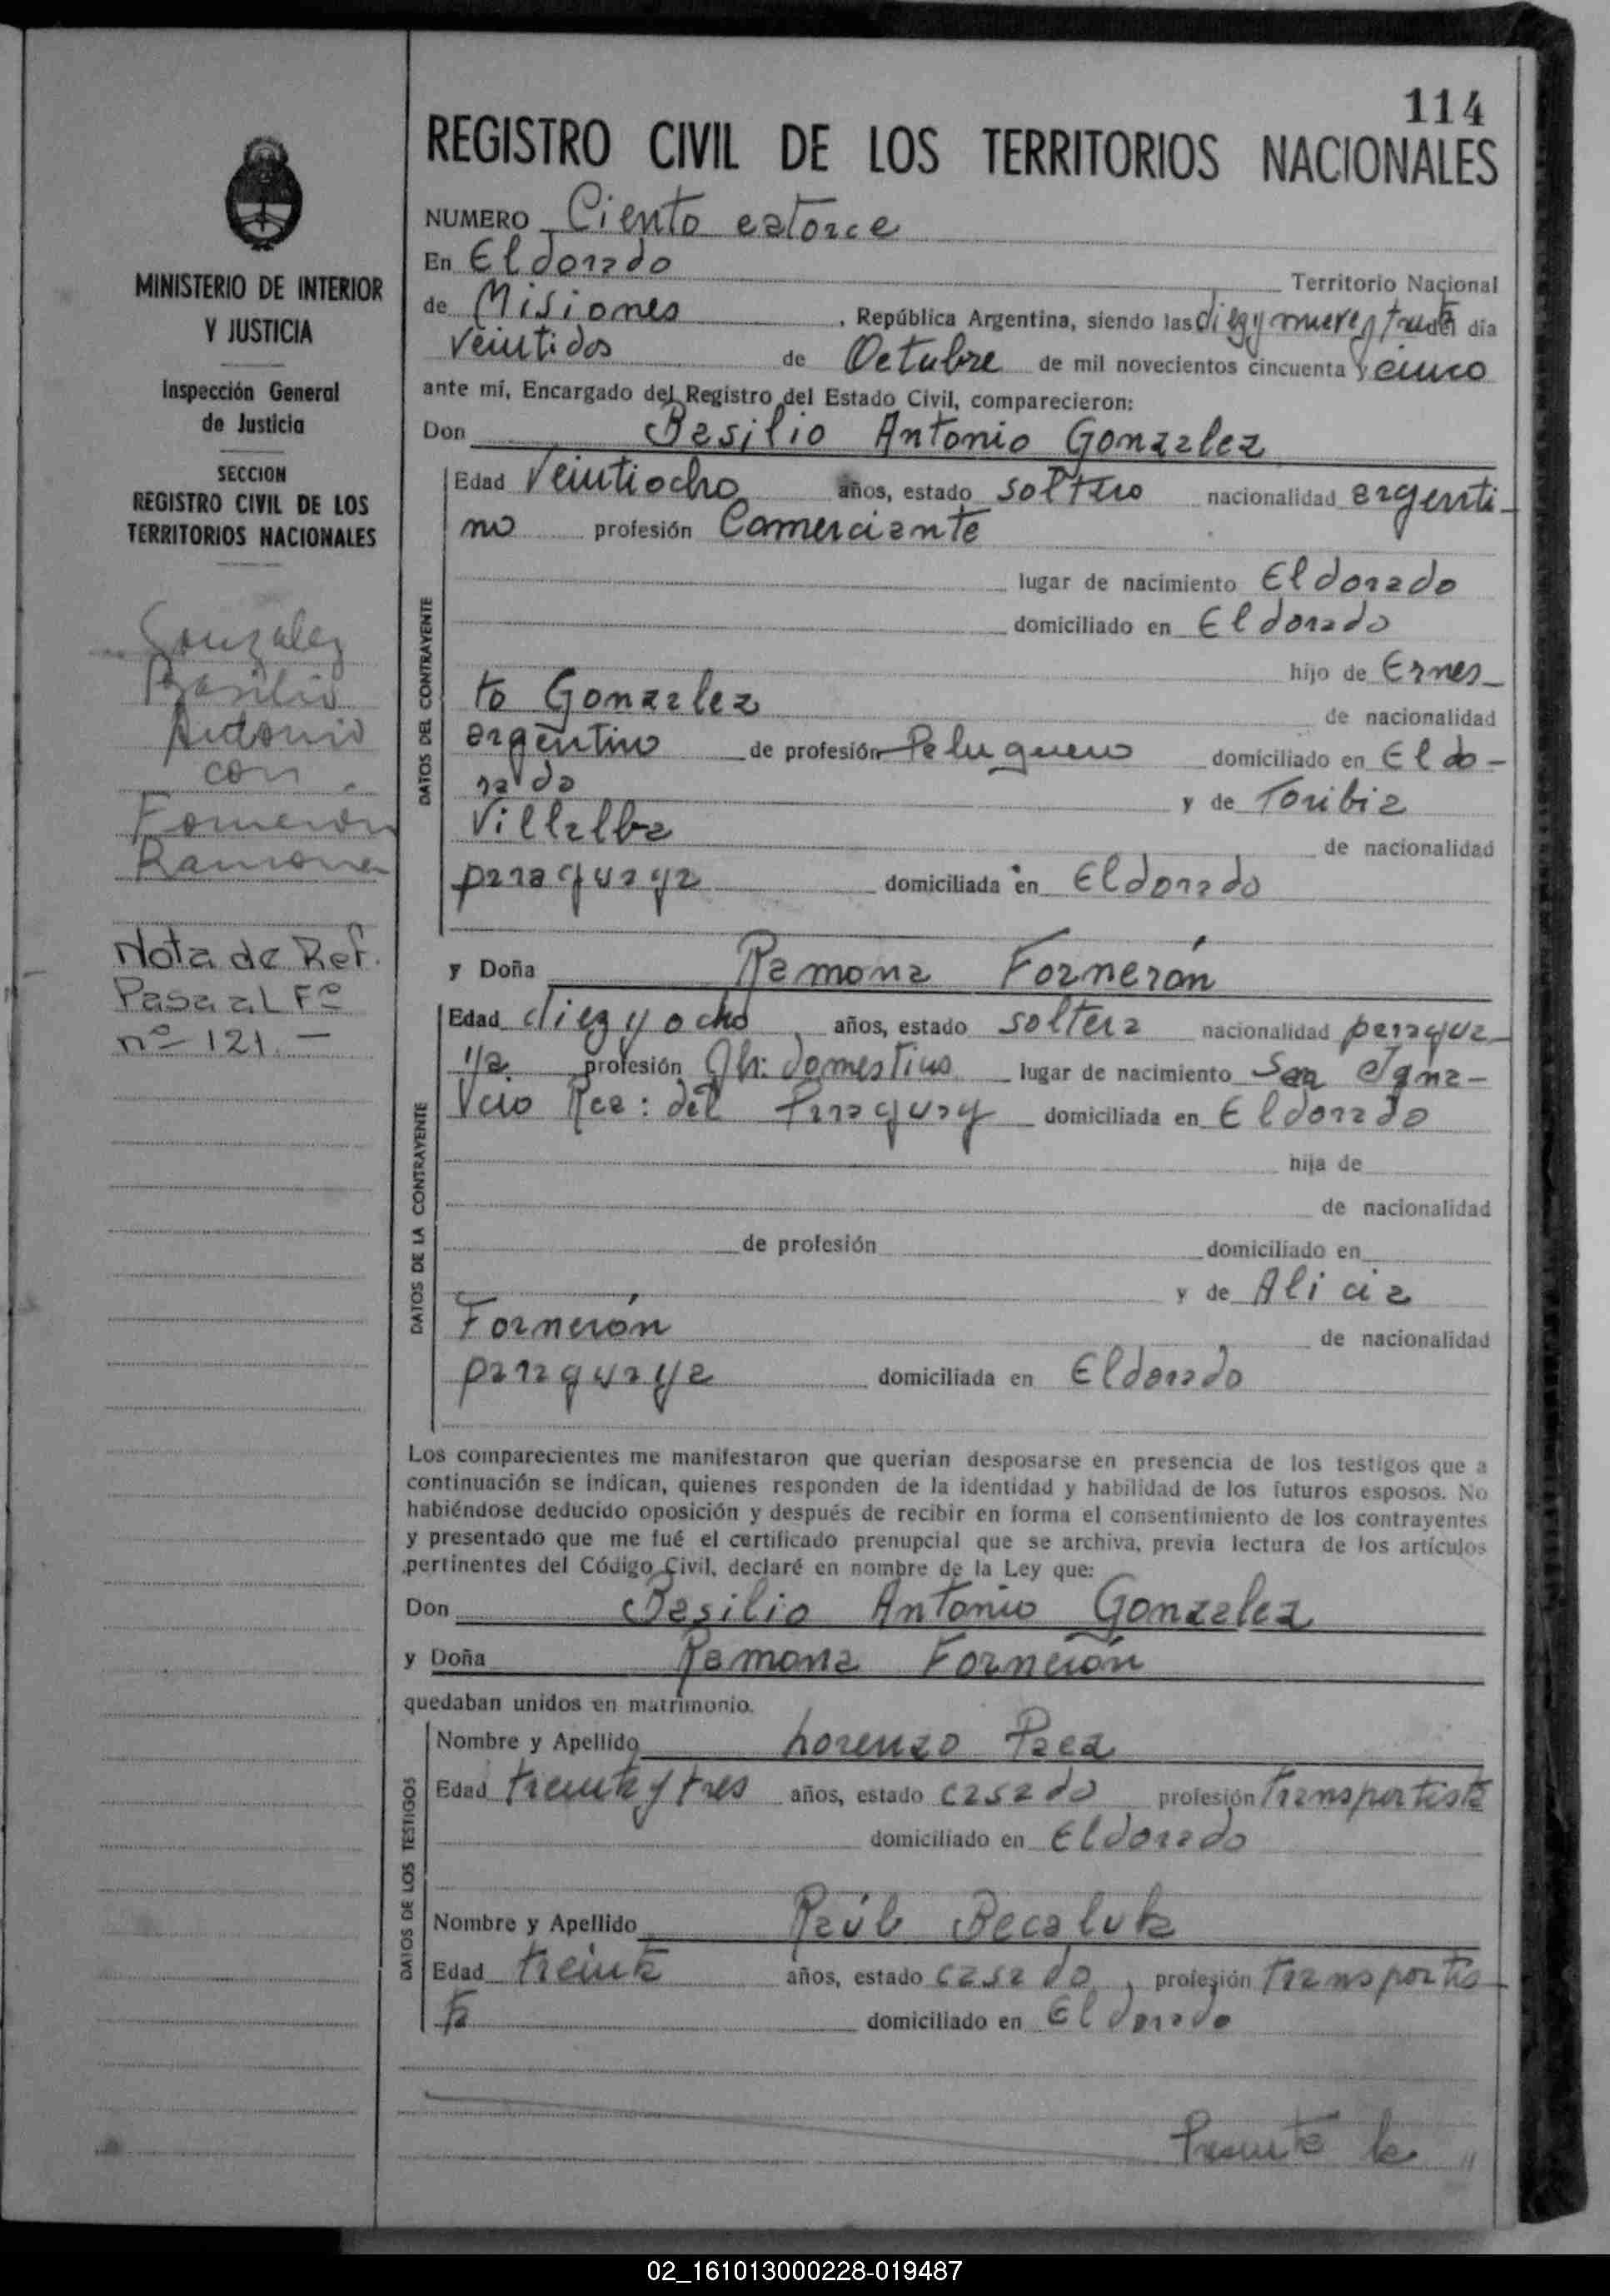 114
REGISTRO CIVIL DE LOS TERRITORIOS NACIONALES
MINISTERIO DE INTERIOR
Y JUSTICIA
Inspección General
de Justicia
SECCION
REGISTRO CIVIL DE LOS
TERRITORIOS NACIONALES
Gonzalez
Basilio
Antonio
con
Fornerón
Ramona
Nota de Ref.
Pasa al Fº
nº 121.—
NUMERO Ciento catorce
En Eldorado Territorio Nacional
de Misiones, República Argentina, siendo las diez y nueve y treinta del día
veintidos de Octubre de mil novecientos cincuenta y cinco
ante mí, Encargado del Registro del Estado Civil, comparecieron:
Don Basilio Antonio Gonzalez
DATOS DEL CONTRAYENTE
Edad Veintiocho años, estado soltero nacionalidad argenti-
no profesión Comerciante
lugar de nacimiento Eldorado
domiciliado en Eldorado
hijo de Ernes-
to Gonzalez de nacionalidad
argentino de profesión Peluquero domiciliado en Eldo-
rado y de Toribia
Villalba de nacionalidad
paraguaya domiciliada en Eldorado
y Doña Ramona Fornerón
DATOS DE LA CONTRAYENTE
Edad diez y ocho, años, estado soltera nacionalidad paragua-
ya. profesión Qh: domesticos lugar de nacimiento San Igna-
cio Rca: del Paraguay domiciliada en Eldorado
hija de
de nacionalidad
de profesión domiciliado en
y de Alicia
Fornerón de nacionalidad
paraguaya domiciliada en Eldorado
Los comparecientes me manifestaron que querían desposarse en presencia de los testigos que a
continuación se indican, quienes responden de la identidad y habilidad de los futuros esposos. No
habiéndose deducido oposición y después de recibir en forma el consentimiento de los contrayentes
y presentado que me fué el certificado prenupcial que se archiva, previa lectura de los artículos
pertinentes del Código Civil, declaré en nombre de la Ley que:
Don Basilio Antonio Gonzalez
y Doña Ramona Fornerón
quedaban unidos en matrimonio.
DATOS DE LOS TESTIGOS
Nombre y Apellido Lorenzo Paez
Edad treinta y tres años, estado casado profesión Transportista
domiciliado en Eldorado
Nombre y Apellido Raúl Becaluk
Edad treinta años, estado casado, profesión transportis-
ta domiciliado en Eldorado
Presente la "
02_161013000228-019487